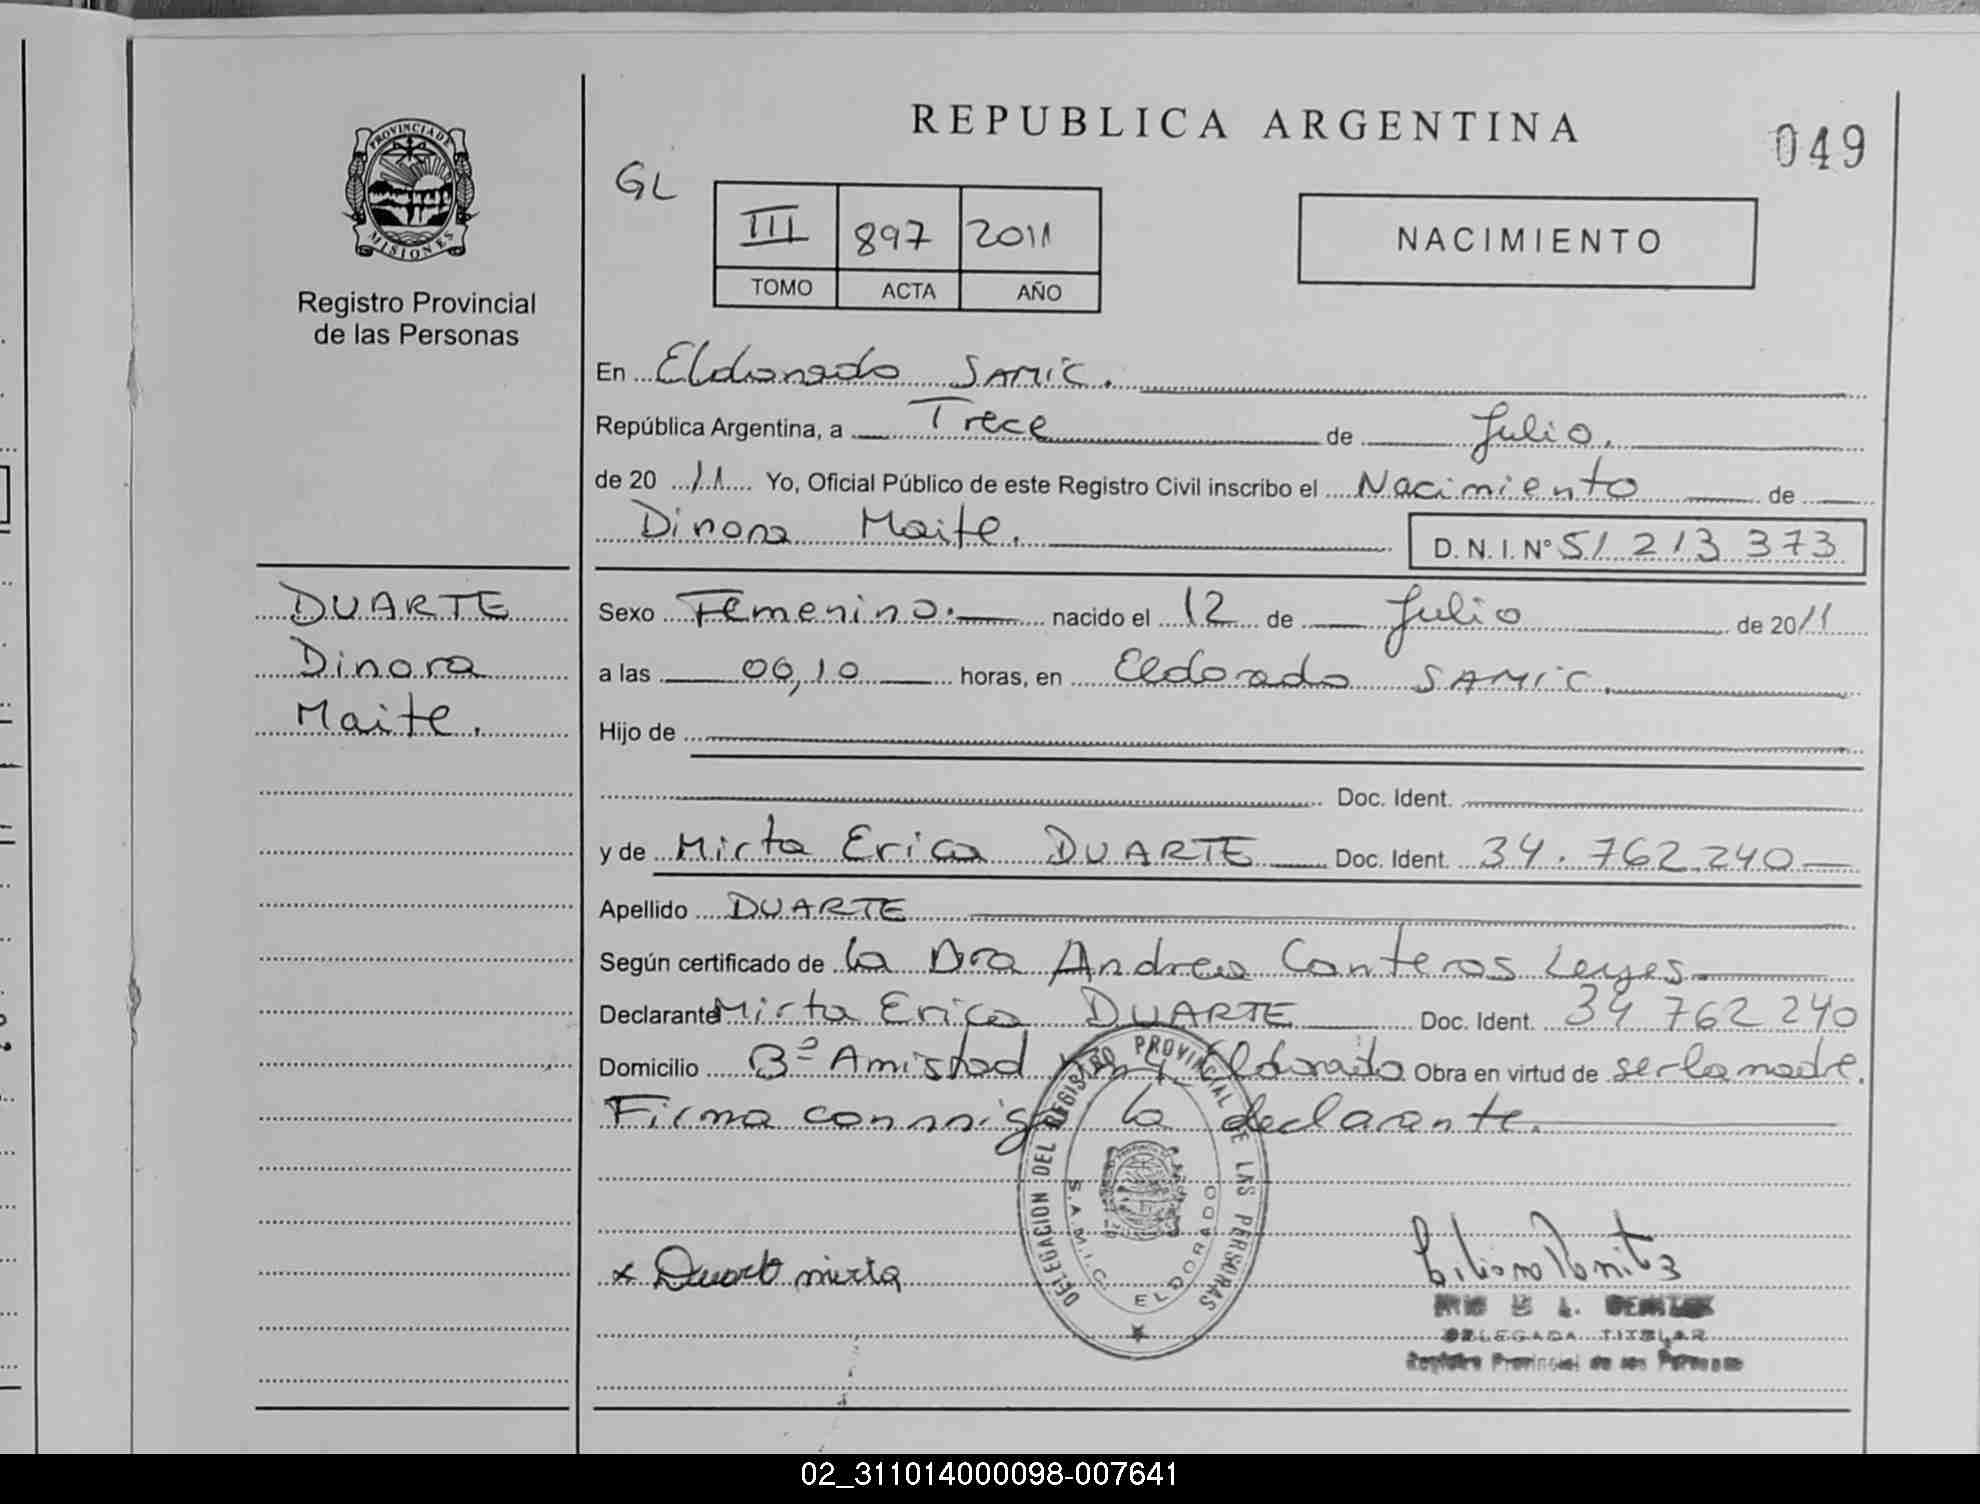 REPUBLICA ARGENTINA
049
PROVINCIA DE
MISIONES
Registro Provincial
de las Personas
GL
III 897 2011
TOMO ACTA AÑO
NACIMIENTO
En Eldorado SAMIC.
República Argentina, a Trece de Julio.
de 20 11 Yo, Oficial Público de este Registro Civil inscribo el Nacimiento de
Dinora Maite.
D. N. I. Nº 51 213 373
DUARTE
Dinora
Maite.
Sexo Femenino. nacido el 12 de Julio de 2011
a las 00,10 horas, en Eldorado SAMIC.
Hijo de
Doc. Ident.
y de Mirta Erica DUARTE Doc. Ident. 34.762.240
Apellido DUARTE
Según certificado de la Dra Andrea Canteros Leyes
Declarante Mirta Erica DUARTE Doc. Ident. 34 762 240
Domicilio Bº Amistad Km 4 Eldorado Obra en virtud de ser la madre.
Firma conmigo la declarante.
DELEGACION DEL REGISTRO PROVINCIAL DE LAS PERSONAS
S.A.M.I.C. ELDORADO
x Duarte mirta
DELEGADA TITULAR
Registro Provincial de las Personas
02_311014000098-007641